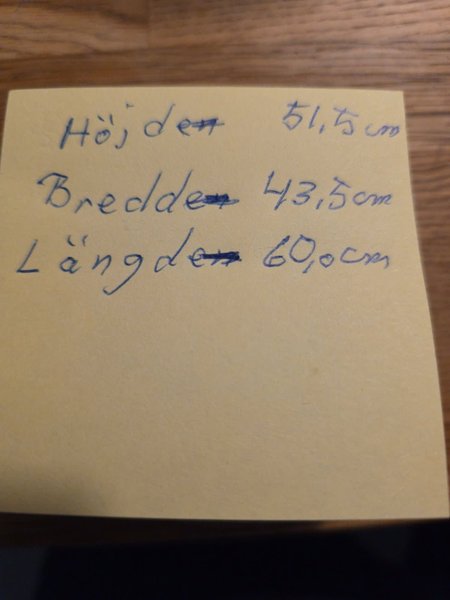 Höjd 51,5cm
Bredd 43,5cm
Längd 60,0cm